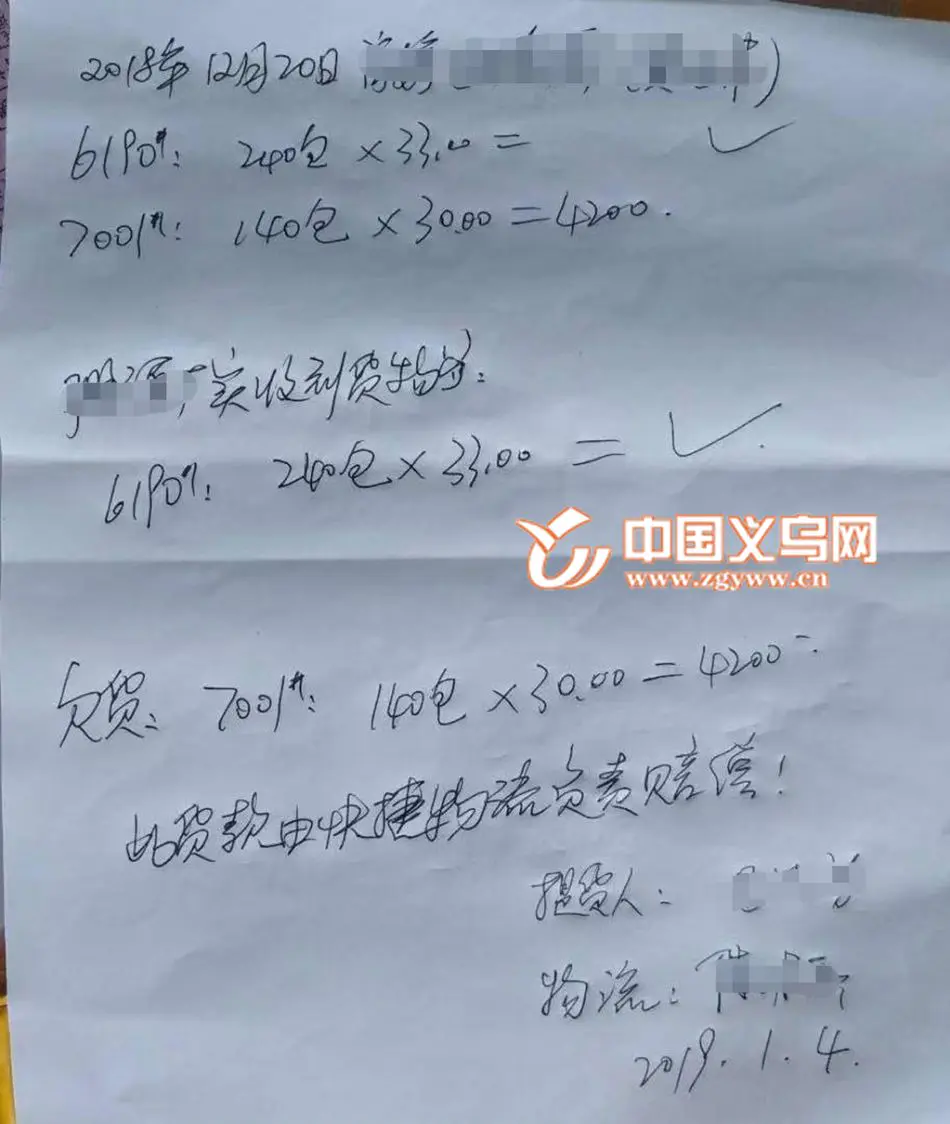 2018年12月20日
6190#: 240包×33.00=
7001#: 140包×30.00=4200.
实收到货物为:
6190#: 240包×33.00=
中国义乌网
www.zgyww.cn
欠货: 7001#: 140包×30.00=4200-.
此货款由快捷物流负责赔偿!
提货人:
物流:
2019.1.4.